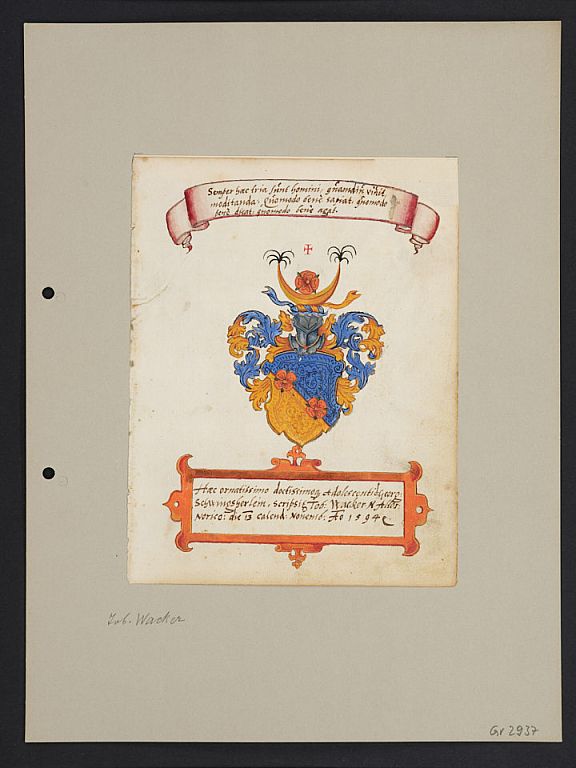 Semper hæc tria sunt homini, quamdiu vivit
meditanda, Quomodo benè sapiat, quomodo
benè dicat, quomodo benè agat.
Hæc ornatissimo doctissimoq Adolescenti
Schwingsherlein, scripsit Tob. Wacker N.
Norico: die 13 calend: Novemb: Ao 1594
Tob. Wacker
Gr 2937